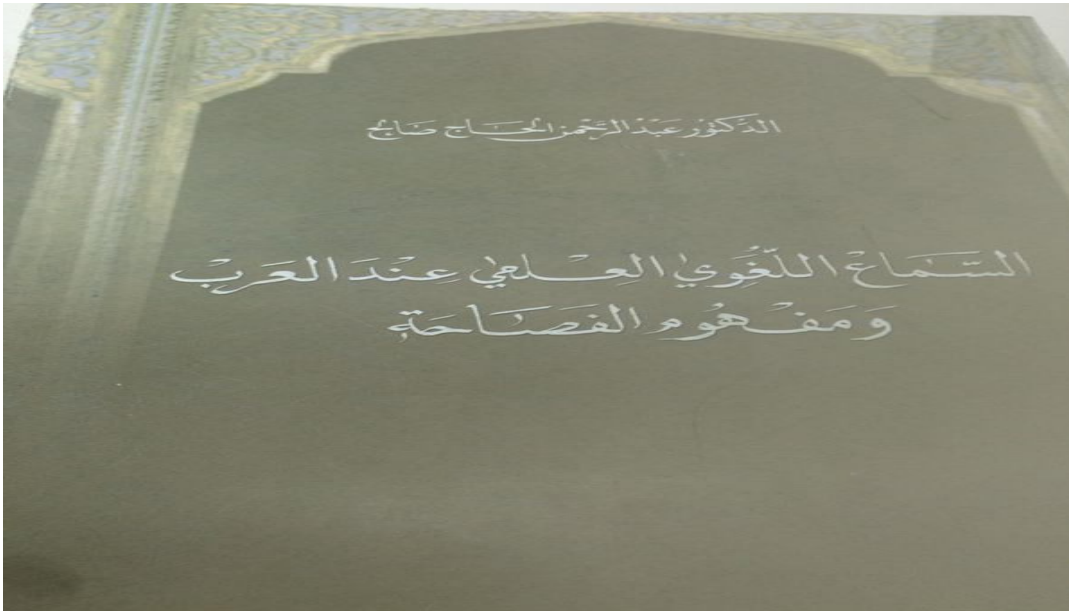 الدكتور عبد الرحمن الحاج صالح
السَّمَاع اللّغَوي العِلمي عِنْدَ العَرَبْ
وَمَفْهُوم الفَصَاحَة